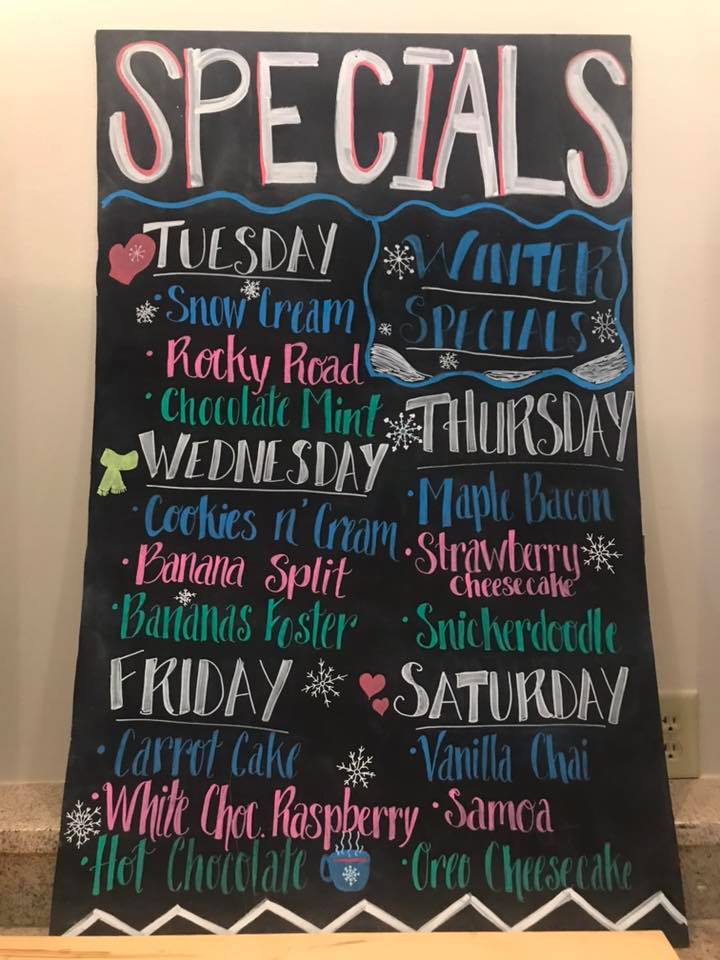 SPECIALS
TUESDAY
• Snow Cream
• Rocky Road
• Chocolate Mint
WINTER
SPECIALS
WEDNESDAY
• Cookies n' Cream
• Banana Split
• Bananas Foster
THURSDAY
• Maple Bacon
• Strawberry
Cheesecake
• Snickerdoodle
FRIDAY
• Carrot Cake
• White Choc. Raspberry
• Hot Chocolate
SATURDAY
• Vanilla Chai
• Samoa
• Oreo Cheesecake